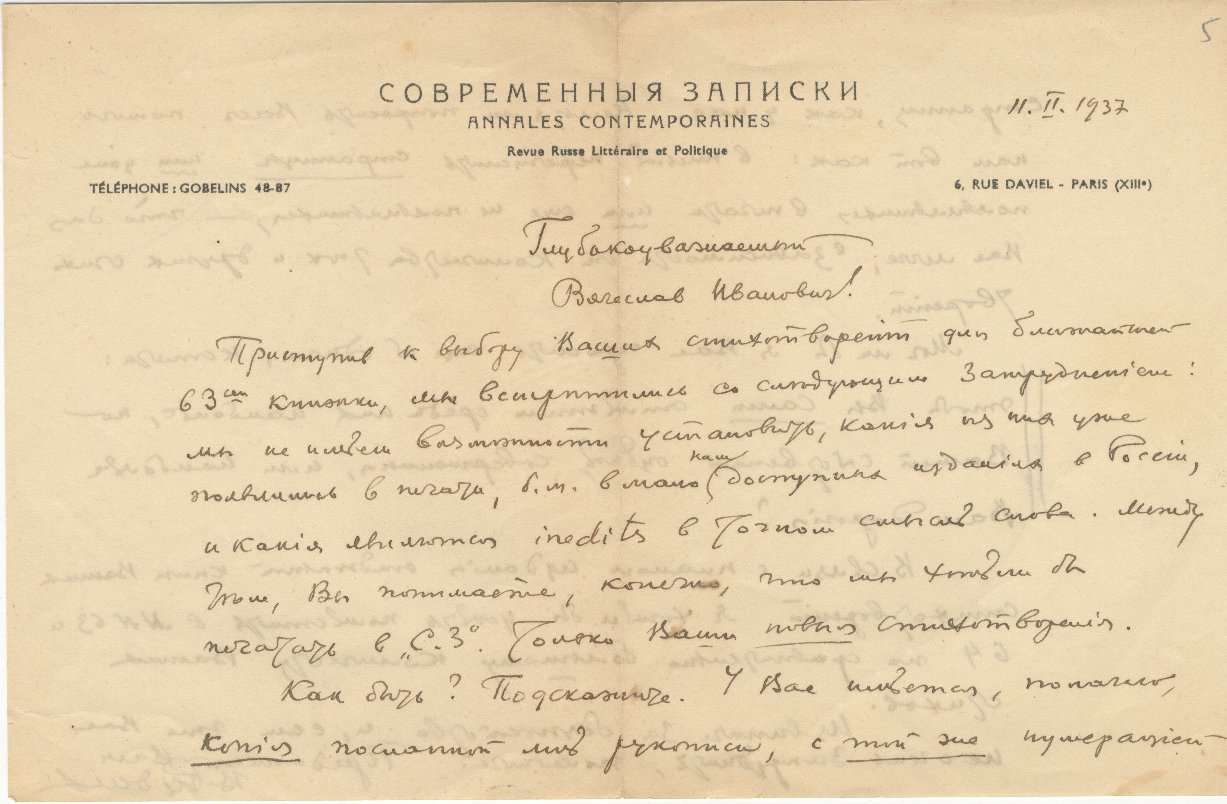 5
СОВРЕМЕННЫЯ ЗАПИСКИ
ANNALES CONTEMPORAINES
Revue Russe Littéraire et Politique
11. II. 1937
TÉLÉPHONE : GOBELINS 48-87
6, RUE DAVIEL - PARIS (XIIIe)
Глубокоуважаемый
Вячеслав Иванович!
Приступив к выбору Ваших стихотворений для ближайшей
63ей книжки, мы встретились со следующим затруднением:
мы не имеем возможности установить, какія из них уже
появились в печати, б.м. в мало нам доступных изданіях в Россіи,
и какія являются inedits в точном смысле слова. Между
тем, Вы понимаете, конечно, что мы хотели бы
печатать в „С.З." только Ваши новыя стихотворенія.
Как быть? Подскажите. У Вас имеется, помнится,
копія посланной мне рукописи, с той же нумерацией